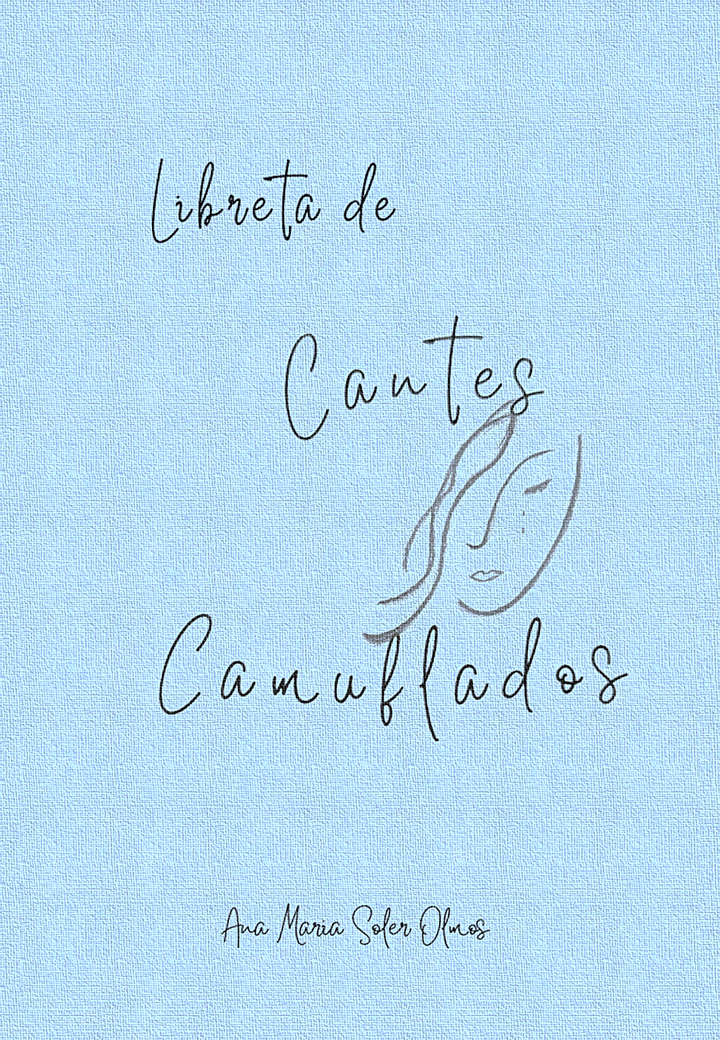 Libreta de
Cantes
Camuflados
Ana Maria Soler Olmos